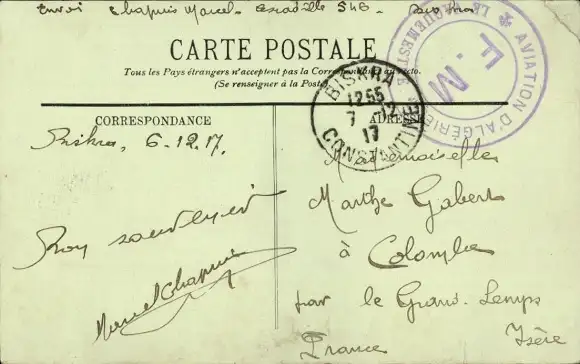 Envoi Chapuis Marcel. Escadrille 546
CARTE POSTALE
Tous les Pays étrangers n'acceptent pas la Correspondance au recto.
(Se renseigner à la Poste)
CORRESPONDANCE
ADRESSE
BISKRA
12 55
7 - 12
17
CONSTANTINE
AVIATION D'ALGÉRIE
LE VAGUEMESTRE
F. M
Biskra, 6-12.17.
Bon souvenir
Marcel Chapuis
Mademoiselle
Marthe Gabert
à Colombe
par le Grand-Lemps
Isère
France